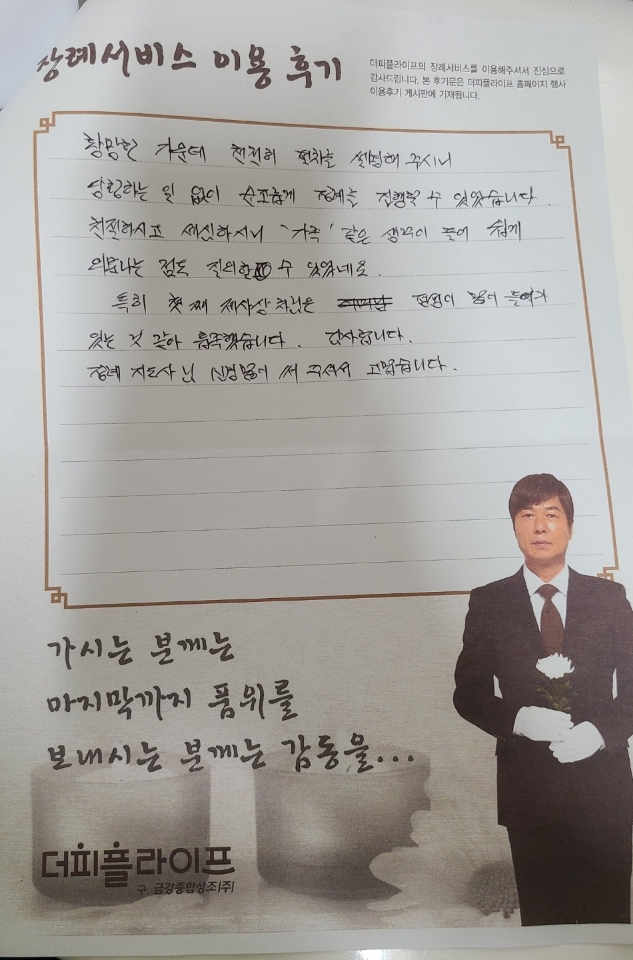 장례서비스 이용 후기
더피플라이프의 장례서비스를 이용해주셔서 진심으로
감사드립니다. 본 후기문은 더피플라이프 홈페이지 행사
이용후기 게시판에 기재됩니다.
황망한 가운데 천천히 절차를 설명해 주시니
당황하는 일 없이 순조롭게 장례를 진행할 수 있었습니다.
친절하시고 세심하시니 '가족' 같은 생각이 들어 쉽게
의문나는 점도 질의할 수 있었네요.
특히 첫 째 제사상 차림은 정성이 많이 들어가
있는 것 같아 흡족했습니다. 감사합니다.
장례 지도사님 신경많이 써 주셔서 고맙습니다.
가시는 분께는
마지막까지 품위를
보내시는 분께는 감동을...
더피플라이프
구. 금강종합상조(주)